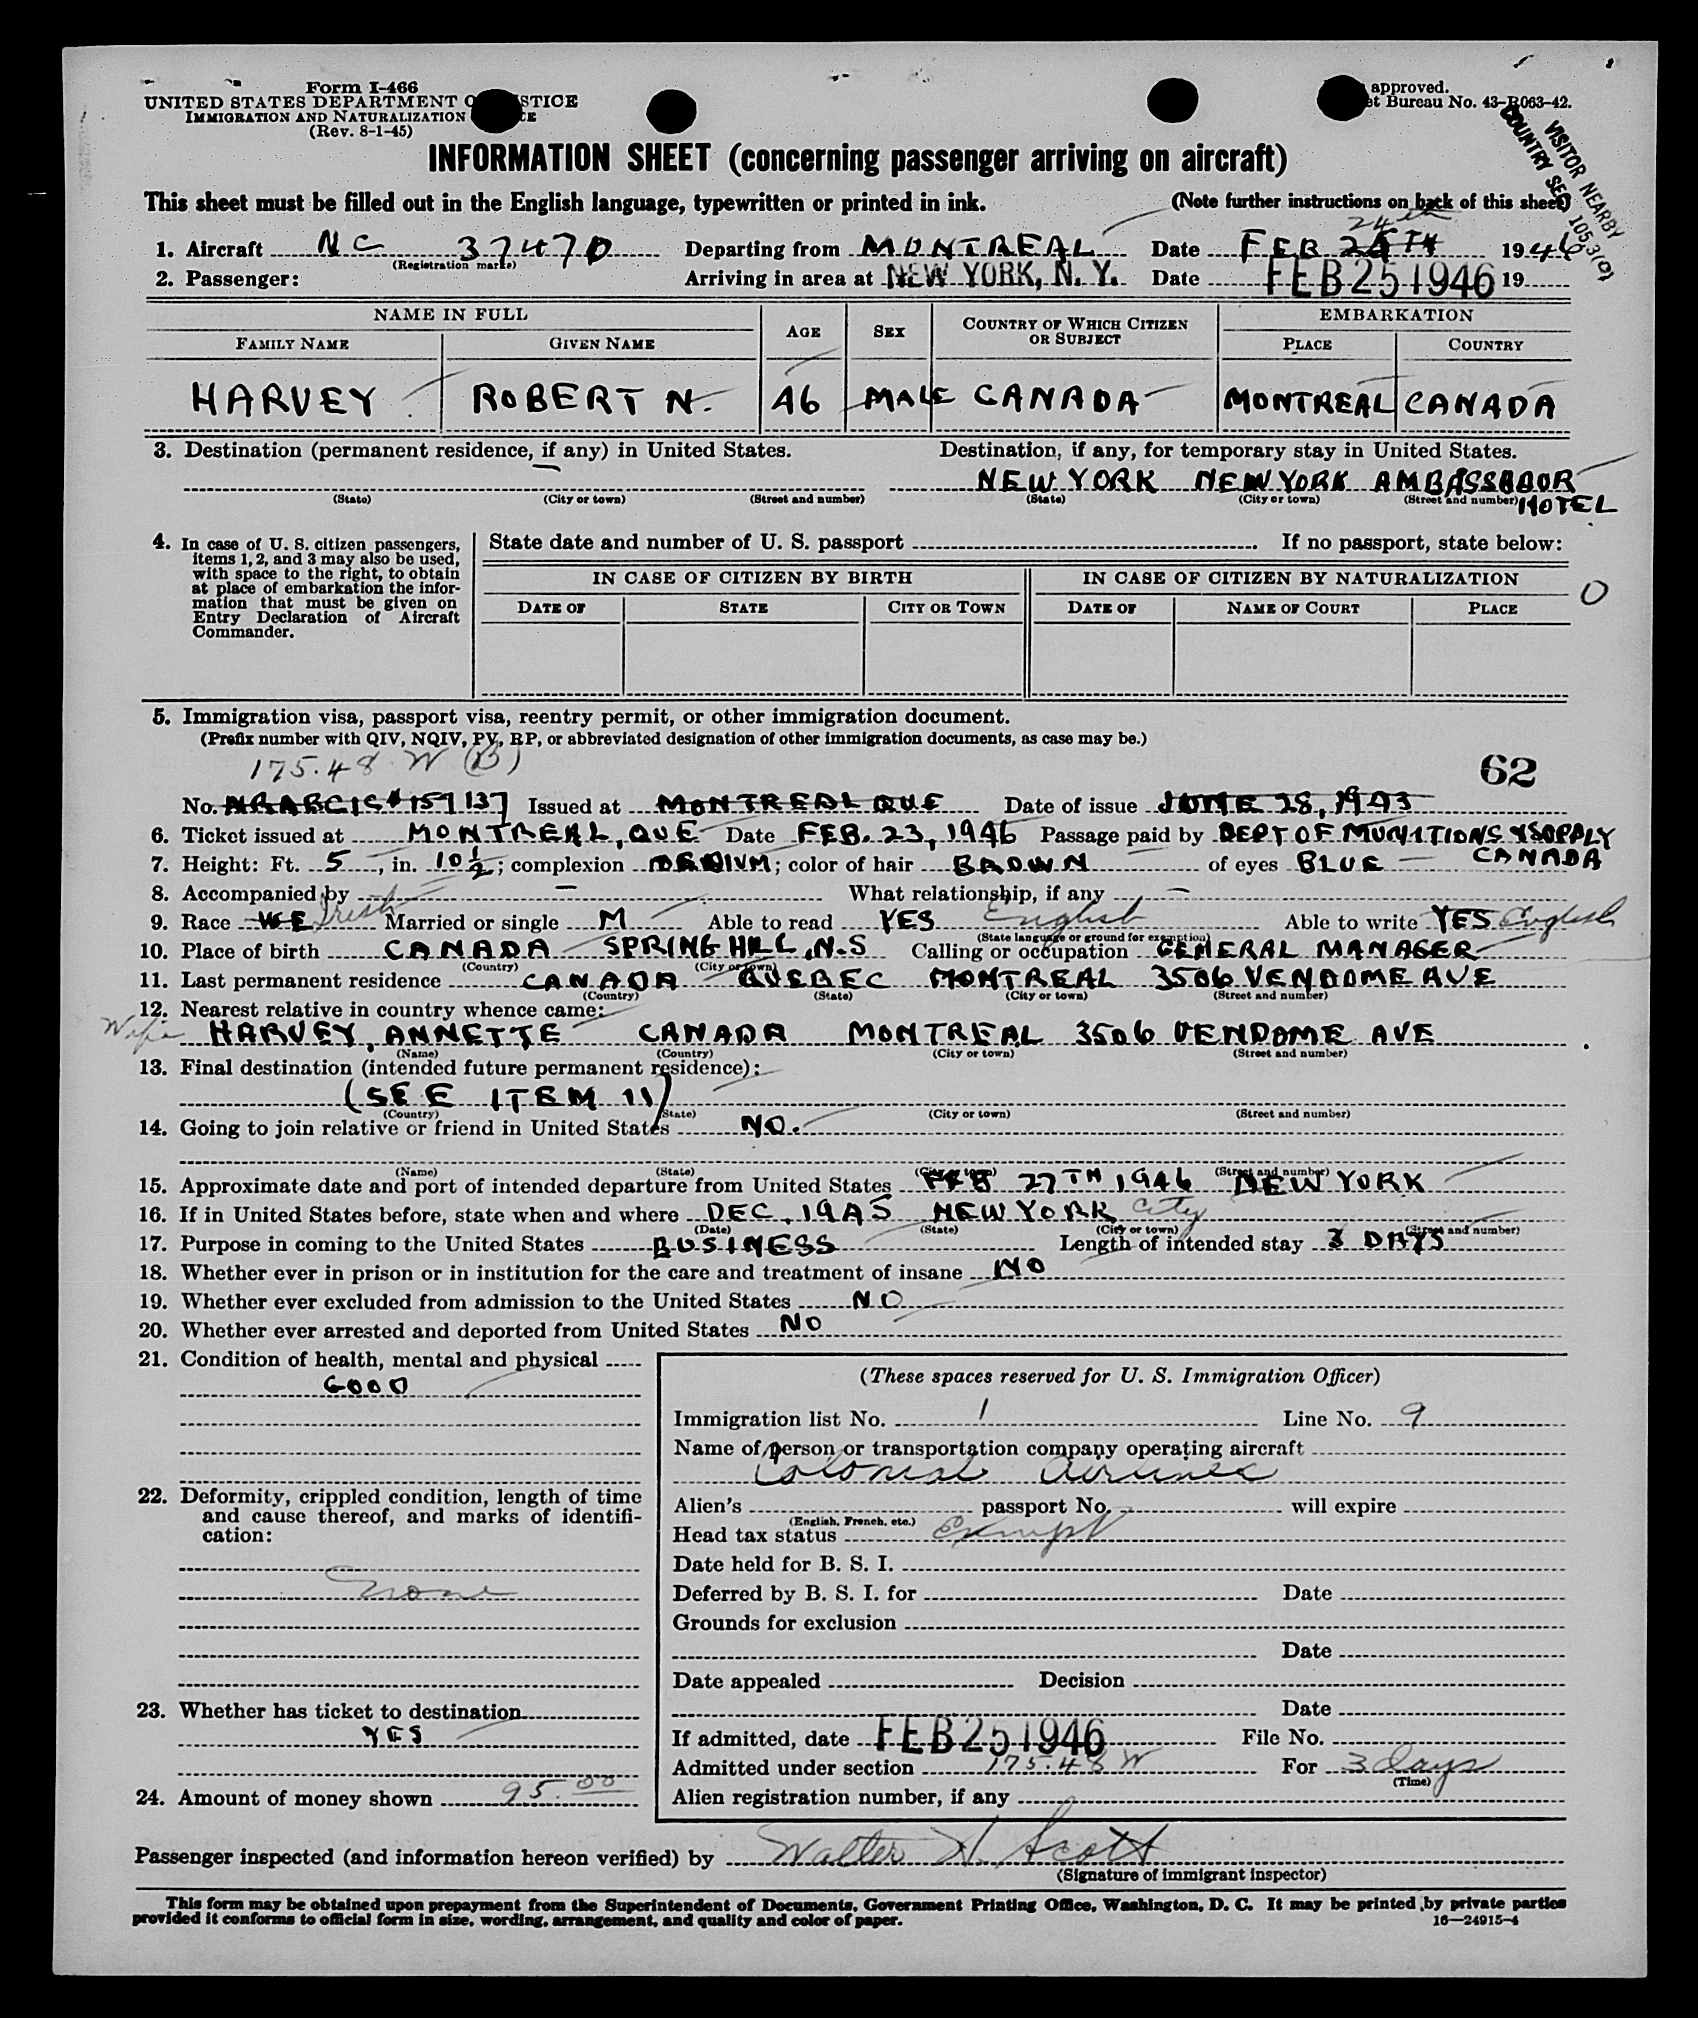 Form I-466
UNITED STATES DEPARTMENT OF JUSTICE
IMMIGRATION AND NATURALIZATION
(Rev. 8-1-45)
approved.
Bureau No. 43-R063-42.
VISITOR NEARBY
COUNTRY SEC 105.3(C)
INFORMATION SHEET (concerning passenger arriving on aircraft)
This sheet must be filled out in the English language, typewritten or printed in ink. (Note further instructions on back of this sheet)
24th
1. Aircraft NC 37470 Departing from MONTREAL Date FEB 25TH 1946
(Registration marks)
2. Passenger: Arriving in area at NEW YORK, N. Y. Date FEB 25 1946 19
NAME IN FULL AGE SEX COUNTRY OF WHICH CITIZEN OR SUBJECT EMBARKATION
FAMILY NAME GIVEN NAME PLACE COUNTRY
HARVEY ROBERT N. 46 MALE CANADA MONTREAL CANADA
3. Destination (permanent residence, if any) in United States. Destination, if any, for temporary stay in United States.
NEW YORK NEW YORK AMBASSADOR
(State) (City or town) (Street and number) (State) (City or town) (Street and number) HOTEL
4. In case of U. S. citizen passengers, items 1, 2, and 3 may also be used, with space to the right, to obtain at place of embarkation the information that must be given on Entry Declaration of Aircraft Commander.
State date and number of U. S. passport If no passport, state below:
IN CASE OF CITIZEN BY BIRTH IN CASE OF CITIZEN BY NATURALIZATION O
DATE OF STATE CITY OR TOWN DATE OF NAME OF COURT PLACE
5. Immigration visa, passport visa, reentry permit, or other immigration document.
(Prefix number with QIV, NQIV, PV, RP, or abbreviated designation of other immigration documents, as case may be.)
175.48 W (B)
62
No. NRABCIS #157137 Issued at MONTREAL QUE Date of issue JUNE 28, 1943
6. Ticket issued at MONTREAL, QUE Date FEB. 23, 1946 Passage paid by DEPT OF MUNITIONS & SUPPLY
CANADA
7. Height: Ft. 5, in. 10 1/2; complexion MEDIUM; color of hair BROWN of eyes BLUE
8. Accompanied by — What relationship, if any —
9. Race WE Irish Married or single M Able to read YES English Able to write YES English
(State language or ground for exemption)
10. Place of birth CANADA SPRING HILL, N.S Calling or occupation GENERAL MANAGER
(Country) (City or town)
11. Last permanent residence CANADA QUEBEC MONTREAL 3506 VENDOME AVE
(Country) (State) (City or town) (Street and number)
12. Nearest relative in country whence came:
Wife HARVEY, ANNETTE CANADA MONTREAL 3506 VENDOME AVE
(Name) (Country) (City or town) (Street and number)
13. Final destination (intended future permanent residence):
(SEE ITEM 11)
(Country) (State) (City or town) (Street and number)
14. Going to join relative or friend in United States NO.
(Name) (State) (City or town) (Street and number)
15. Approximate date and port of intended departure from United States FEB 27TH 1946 NEW YORK
16. If in United States before, state when and where DEC, 1945 NEW YORK City
(Date) (State) (City or town) (Street and number)
17. Purpose in coming to the United States BUSINESS Length of intended stay 3 DAYS
18. Whether ever in prison or in institution for the care and treatment of insane NO
19. Whether ever excluded from admission to the United States NO
20. Whether ever arrested and deported from United States NO
21. Condition of health, mental and physical
GOOD
22. Deformity, crippled condition, length of time and cause thereof, and marks of identification:
None
23. Whether has ticket to destination
YES
24. Amount of money shown 95.00
(These spaces reserved for U. S. Immigration Officer)
Immigration list No. 1 Line No. 9
Name of person or transportation company operating aircraft
Colonial Airlines
Alien's passport No. will expire
(English, French, etc.)
Head tax status Exempt
Date held for B. S. I.
Deferred by B. S. I. for Date
Grounds for exclusion
Date
Date appealed Decision
Date
If admitted, date FEB 25 1946 File No.
Admitted under section 175.48 W For 3 days
(Time)
Alien registration number, if any
Passenger inspected (and information hereon verified) by Walter H. Scott
(Signature of immigrant inspector)
This form may be obtained upon prepayment from the Superintendent of Documents, Government Printing Office, Washington, D. C. It may be printed by private parties
provided it conforms to official form in size, wording, arrangement, and quality and color of paper. 16—24915-4